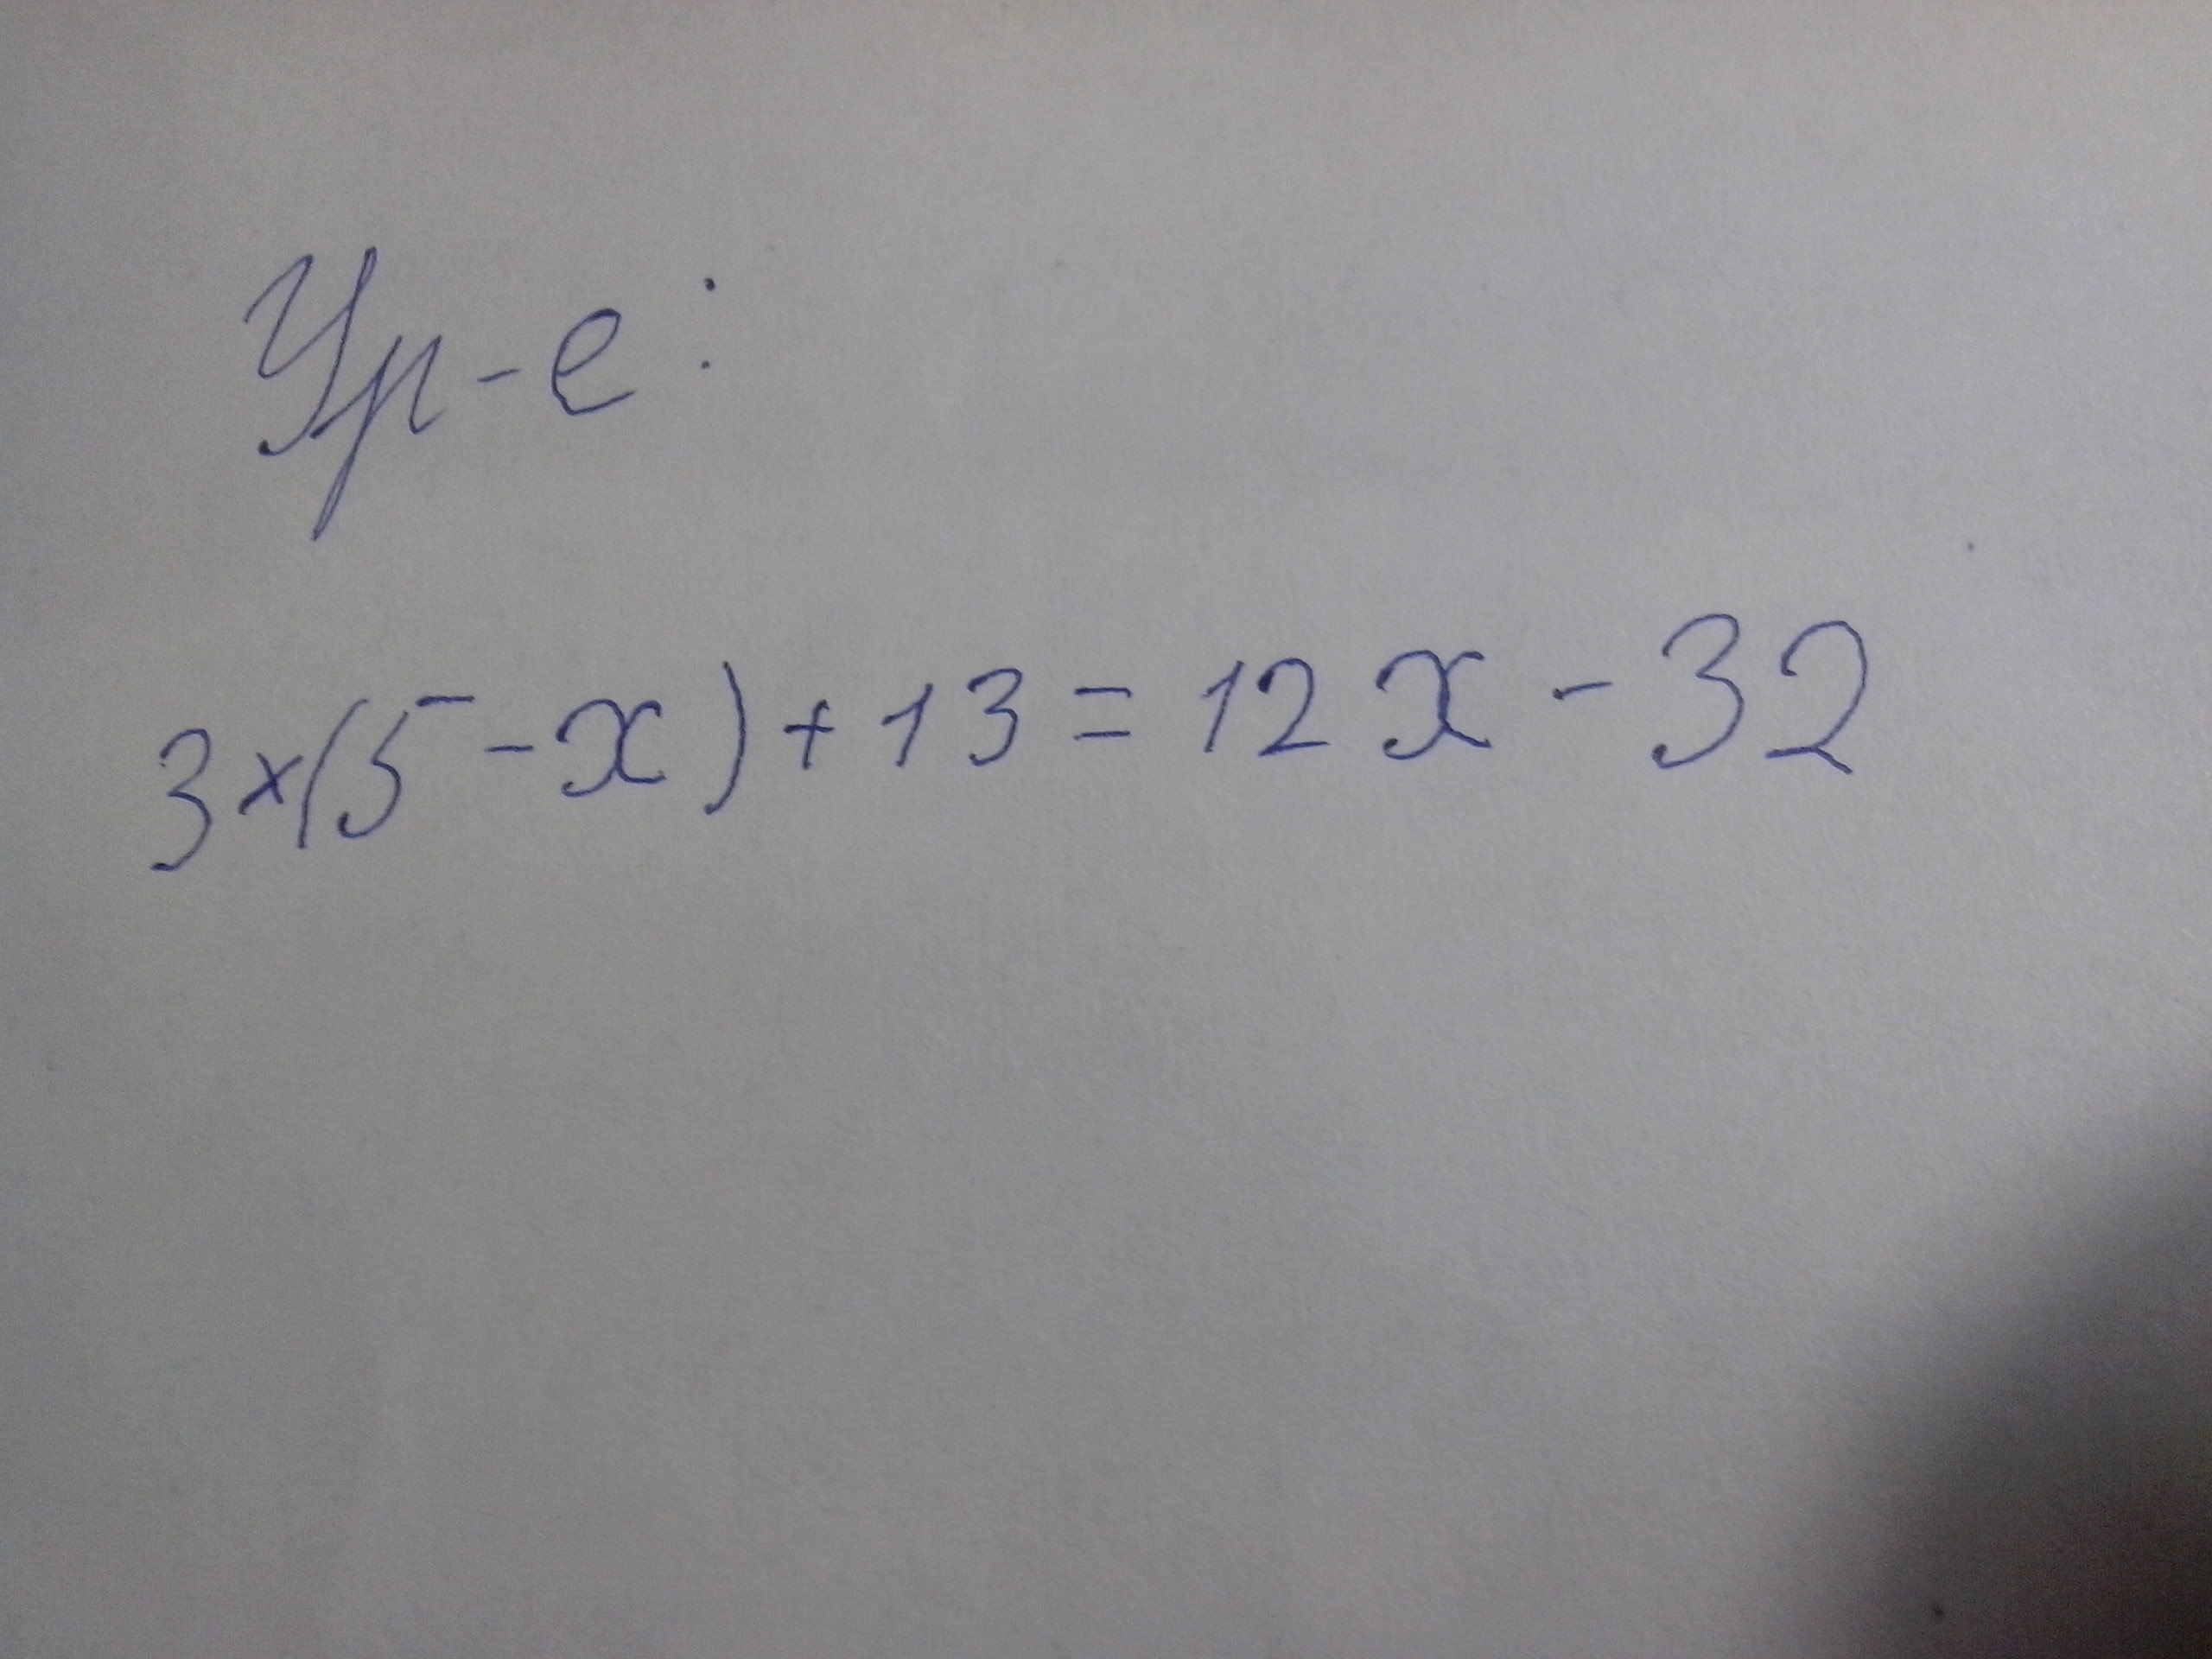 Ур-е:
3×(5-x)+13=12x-32